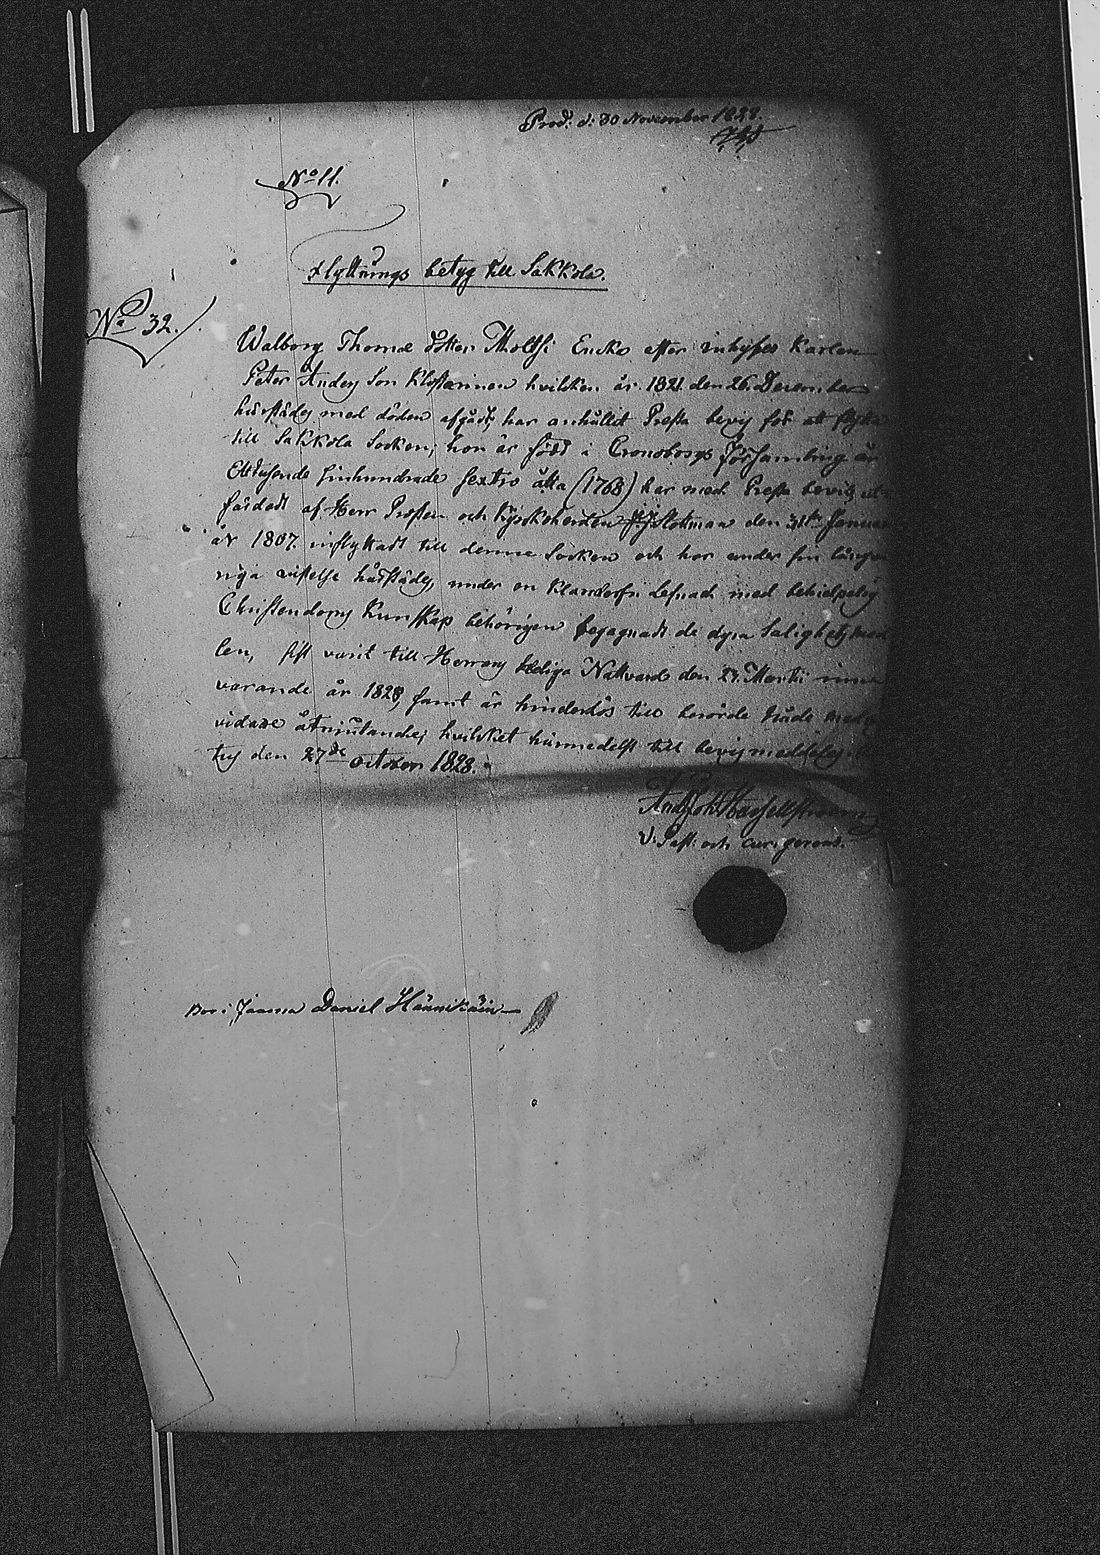 Prod: d: 30 November 1828.
No 11.
Flyttnings betyg till Sakkola
No 32.
Walborg Thomæ dotter Moltsi Encka efter inhyses Karlen
Peter Anders Son Klostarinen hvilken år 1821 den 26 December
härstädes med döden afgådt, har anhållit Presta bevis för att flytta
till Sakkola Socken; hon är född i Cronoborgs församling år
Ettusende sjuhundrade sextio åtta (1768) har med Presta bevis ut-
färdadt af Herr Prosten och Kyrkoherden Slotman den 31ta Janua
år 1807. inflyttadt till denne Socken och har under sin långva
riga vistelse härstädes, under en klanderfri lefnad med behielpelig
Christendoms Kunskap behörigen begagnadt de dyra Salighets med
len, sist varit till Herrans Heliga Nattvard den 27. Martii inne
varande år 1828, samt är hinderlös till berörde Nåde med
vidare åtniutande; hvilcket härmedelst till bevis meddelas
try den 27de October 1828.
And: Joh: Hasselström
V: Past: och cur: gerens.
Bor i Jaama Daniel Hännikäin